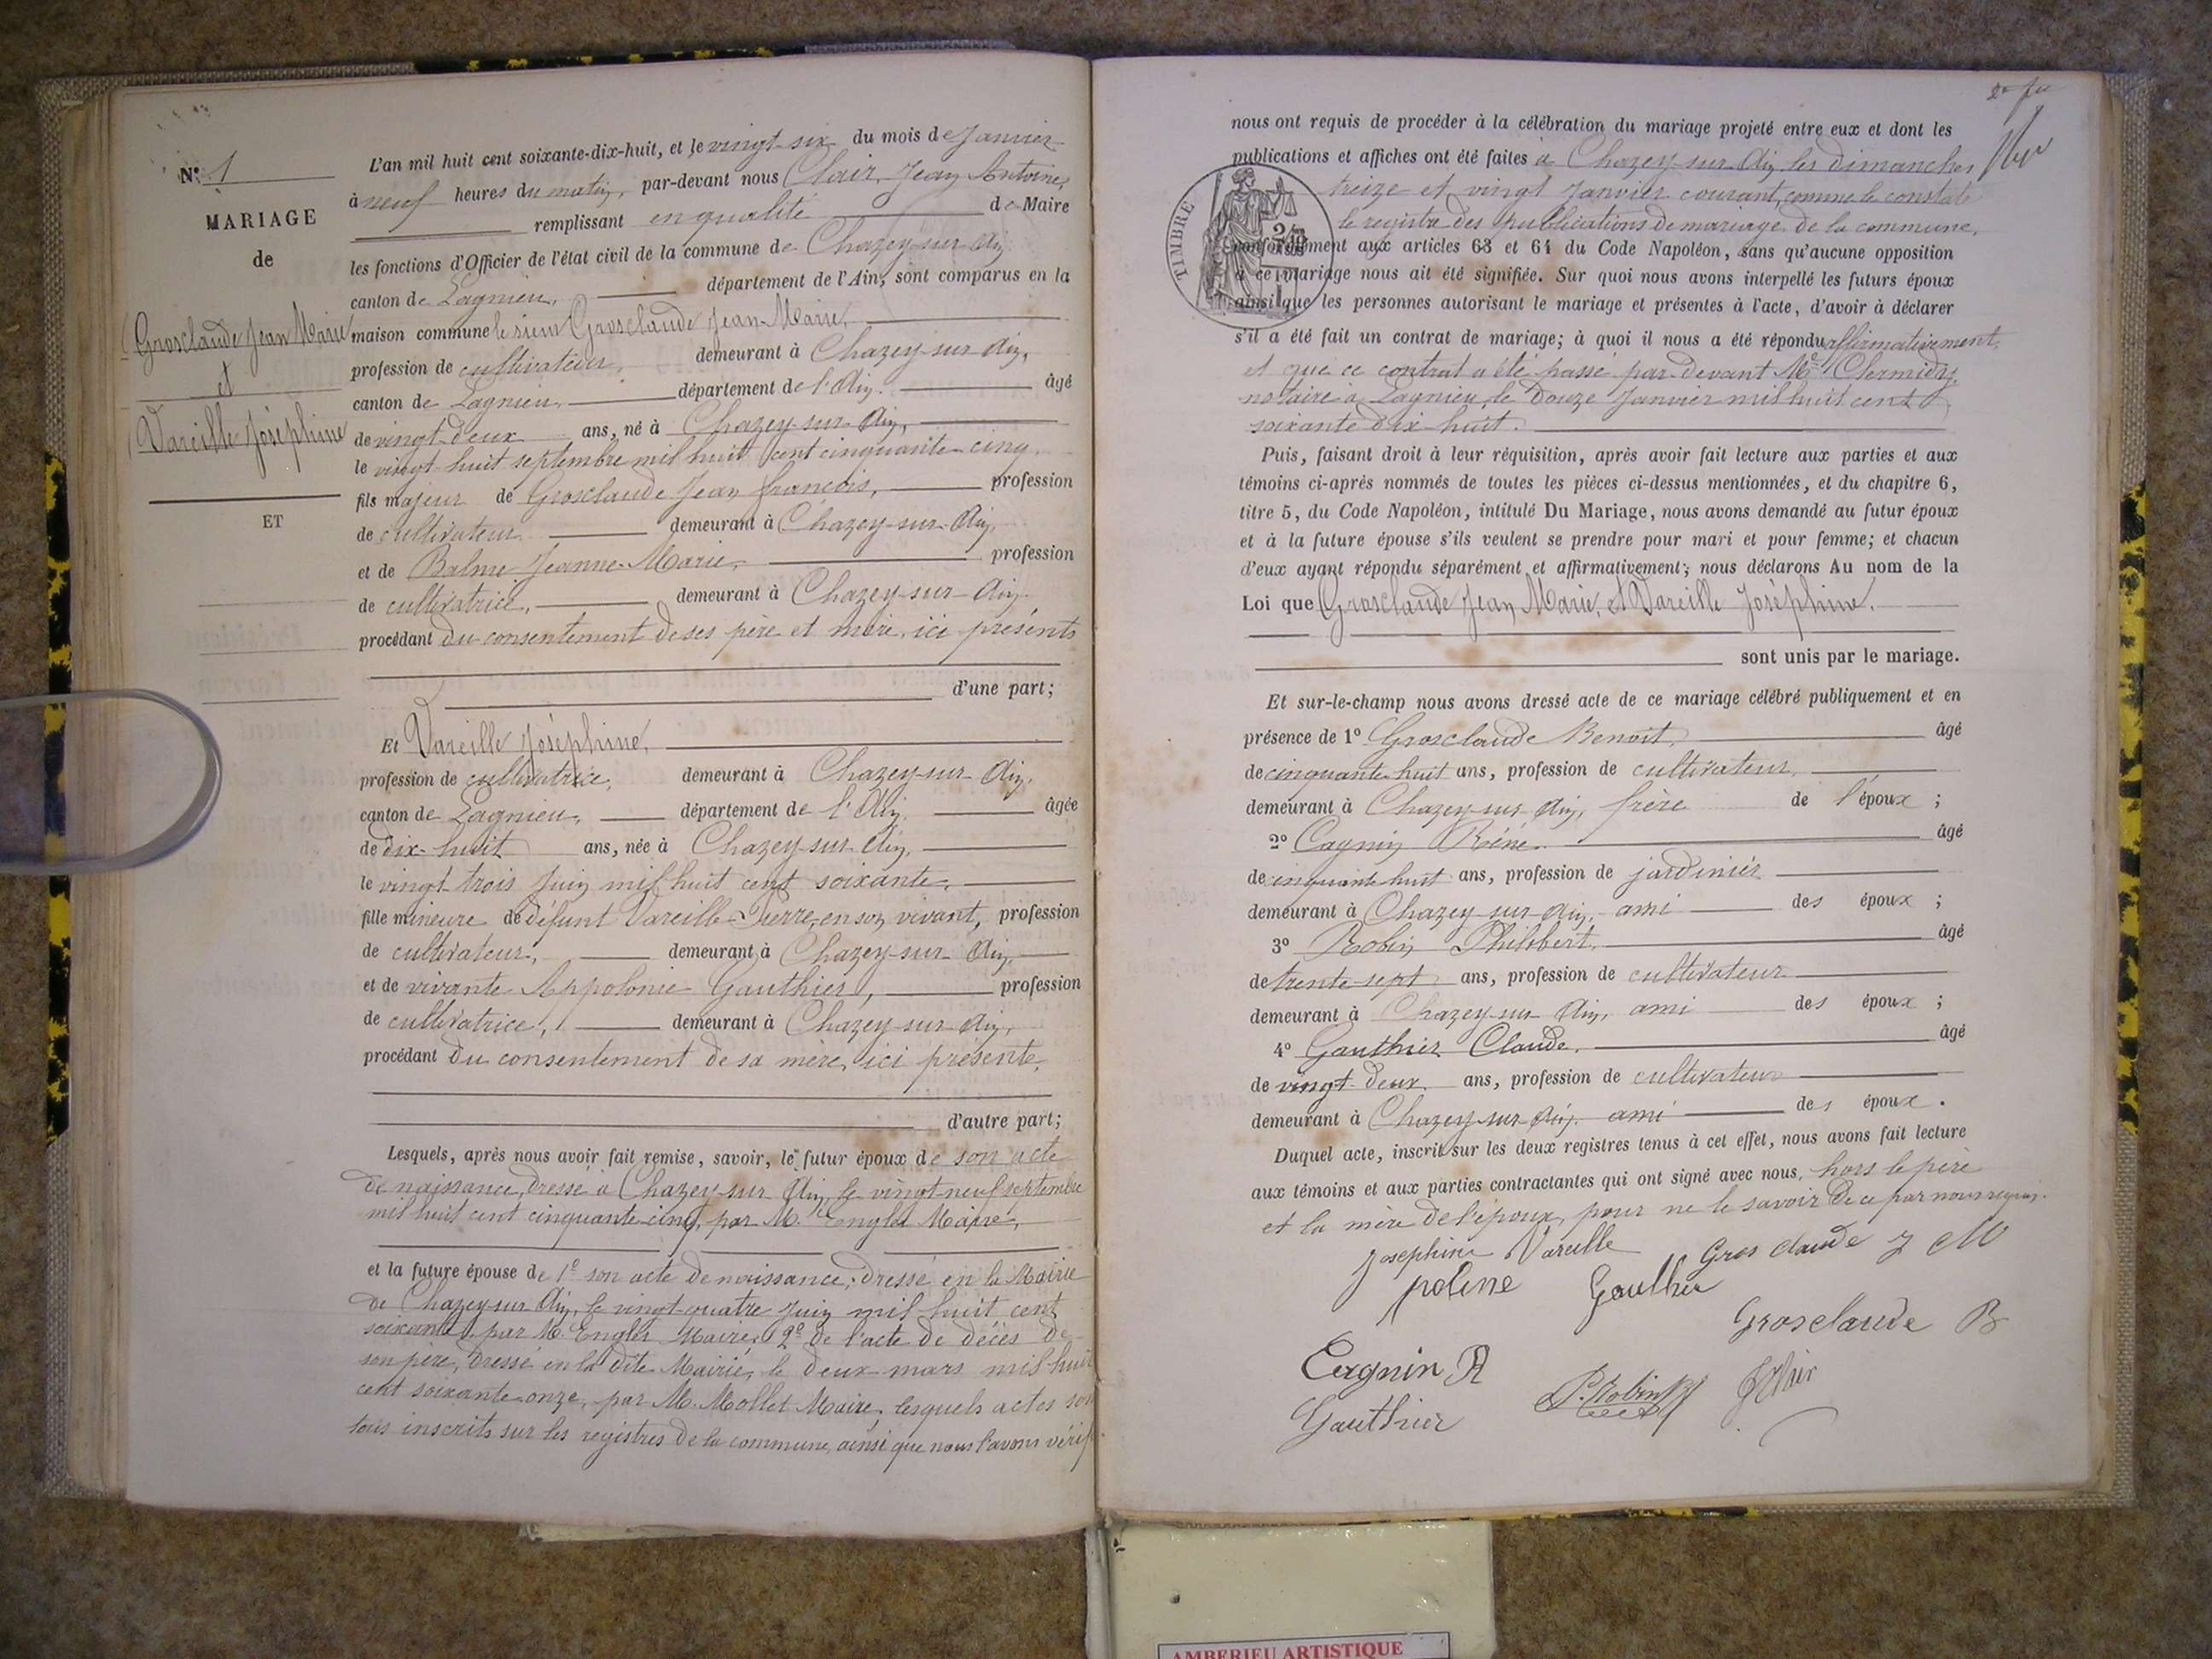 N° 1
MARIAGE
de
Grosclaude Jean Marie
et
Vareille Joséphine
ET
L'an mil huit cent soixante-dix-huit, et le vingt-six du mois de Janvier
à neuf heures du matin, par-devant nous Clair, Jean Antoine,
remplissant en qualité de Maire
les fonctions d'Officier de l'état civil de la commune de Chazey-sur-Ain
canton de Lagnieu, département de l'Ain, sont comparus en la
maison commune le sieur Grosclaude Jean-Marie,
profession de cultivateur, demeurant à Chazey-sur-Ain,
canton de Lagnieu département de l'Ain. âgé
de vingt-deux ans, né à Chazey-sur-Ain,
le vingt-huit septembre mil huit cent cinquante-cinq,
fils majeur de Grosclaude Jean françois, profession
de cultivateur demeurant à Chazey-sur-Ain,
et de Balme Jeanne-Marie, profession
de cultivatrice, demeurant à Chazey-sur-Ain.
procédant du consentement de ses père et mère, ici présents
d'une part;
Et Vareille Joséphine,
profession de cultivatrice, demeurant à Chazey-sur-Ain,
canton de Lagnieu, département de l'Ain, âgée
de dix-huit ans, née à Chazey-sur-Ain,
le vingt trois Juin mil huit cent soixante,
fille mineure de défunt Vareille Pierre, en son vivant, profession
de cultivateur, demeurant à Chazey-sur-Ain,
et de vivante Appolonie Gauthier, profession
de cultivatrice, demeurant à Chazey-sur-Ain,
procédant du consentement de sa mère, ici présente,
d'autre part;
Lesquels, après nous avoir fait remise, savoir, le futur époux de son acte
de naissance, dressé à Chazey-sur-Ain, le vingt-neuf septembre
mil huit cent cinquante-cinq, par M. Engler Maire,
et la future épouse de 1° son acte de naissance, dressé en la Mairie
de Chazey-sur-Ain, le vingt-quatre Juin mil huit cent
soixante, par M. Engler Maire, 2° de l'acte de décès de
son père, dressé en la dite Mairie, le deux mars mil huit
cent soixante-onze, par M. Mollet Maire, lesquels actes son
tous inscrits sur les registres de la commune, ainsi que nous l'avons vérif
nous ont requis de procéder à la célébration du mariage projeté entre eux et dont les
publications et affiches ont été faites à Chazey-sur-Ain, les dimanches
treize et vingt Janvier courant, comme le constate
le registre des publications de mariage de la commune,
TIMBRE
conformément aux articles 63 et 64 du Code Napoléon, sans qu'aucune opposition
à ce mariage nous ait été signifiée. Sur quoi nous avons interpellé les futurs époux
ainsi que les personnes autorisant le mariage et présentes à l'acte, d'avoir à déclarer
s'il a été fait un contrat de mariage; à quoi il nous a été répondu affirmativement,
et que ce contrat a été passé par-devant Me Chermidy,
notaire à Lagnieu, le douze Janvier mil huit cent
soixante dix-huit.
Puis, faisant droit à leur réquisition, après avoir fait lecture aux parties et aux
témoins ci-après nommés de toutes les pièces ci-dessus mentionnées, et du chapitre 6,
titre 5, du Code Napoléon, intitulé Du Mariage, nous avons demandé au futur époux
et à la future épouse s'ils veulent se prendre pour mari et pour femme; et chacun
d'eux ayant répondu séparément et affirmativement; nous déclarons Au nom de la
Loi que Grosclaude Jean Marie, et Vareille Joséphine.
sont unis par le mariage.
Et sur-le-champ nous avons dressé acte de ce mariage célébré publiquement et en
présence de 1° Grosclaude Benoît, âgé
de cinquante huit ans, profession de cultivateur,
demeurant à Chazey-sur-Ain, frère de l'époux ;
2° Cagnin Réné. âgé
de cinquante huit ans, profession de jardinier
demeurant à Chazey-sur-Ain, ami des époux ;
3° Robin Philibert, âgé
de trente-sept ans, profession de cultivateur
demeurant à Chazey-sur Ain, ami des époux ;
4° Gauthier Claude, âgé
de vingt-deux ans, profession de cultivateur
demeurant à Chazey-sur-Ain, ami des époux.
Duquel acte, inscrit sur les deux registres tenus à cet effet, nous avons fait lecture
aux témoins et aux parties contractantes qui ont signé avec nous, hors le père
et la mère de l'époux, pour ne le savoir de ce par nous requis.
Josephine Vareille Gros claude J M
polene Gauthier
Grosclaude B
Cagnin R
P. Robin
JClair
Gauthier
AMBERIEU ARTISTIQUE